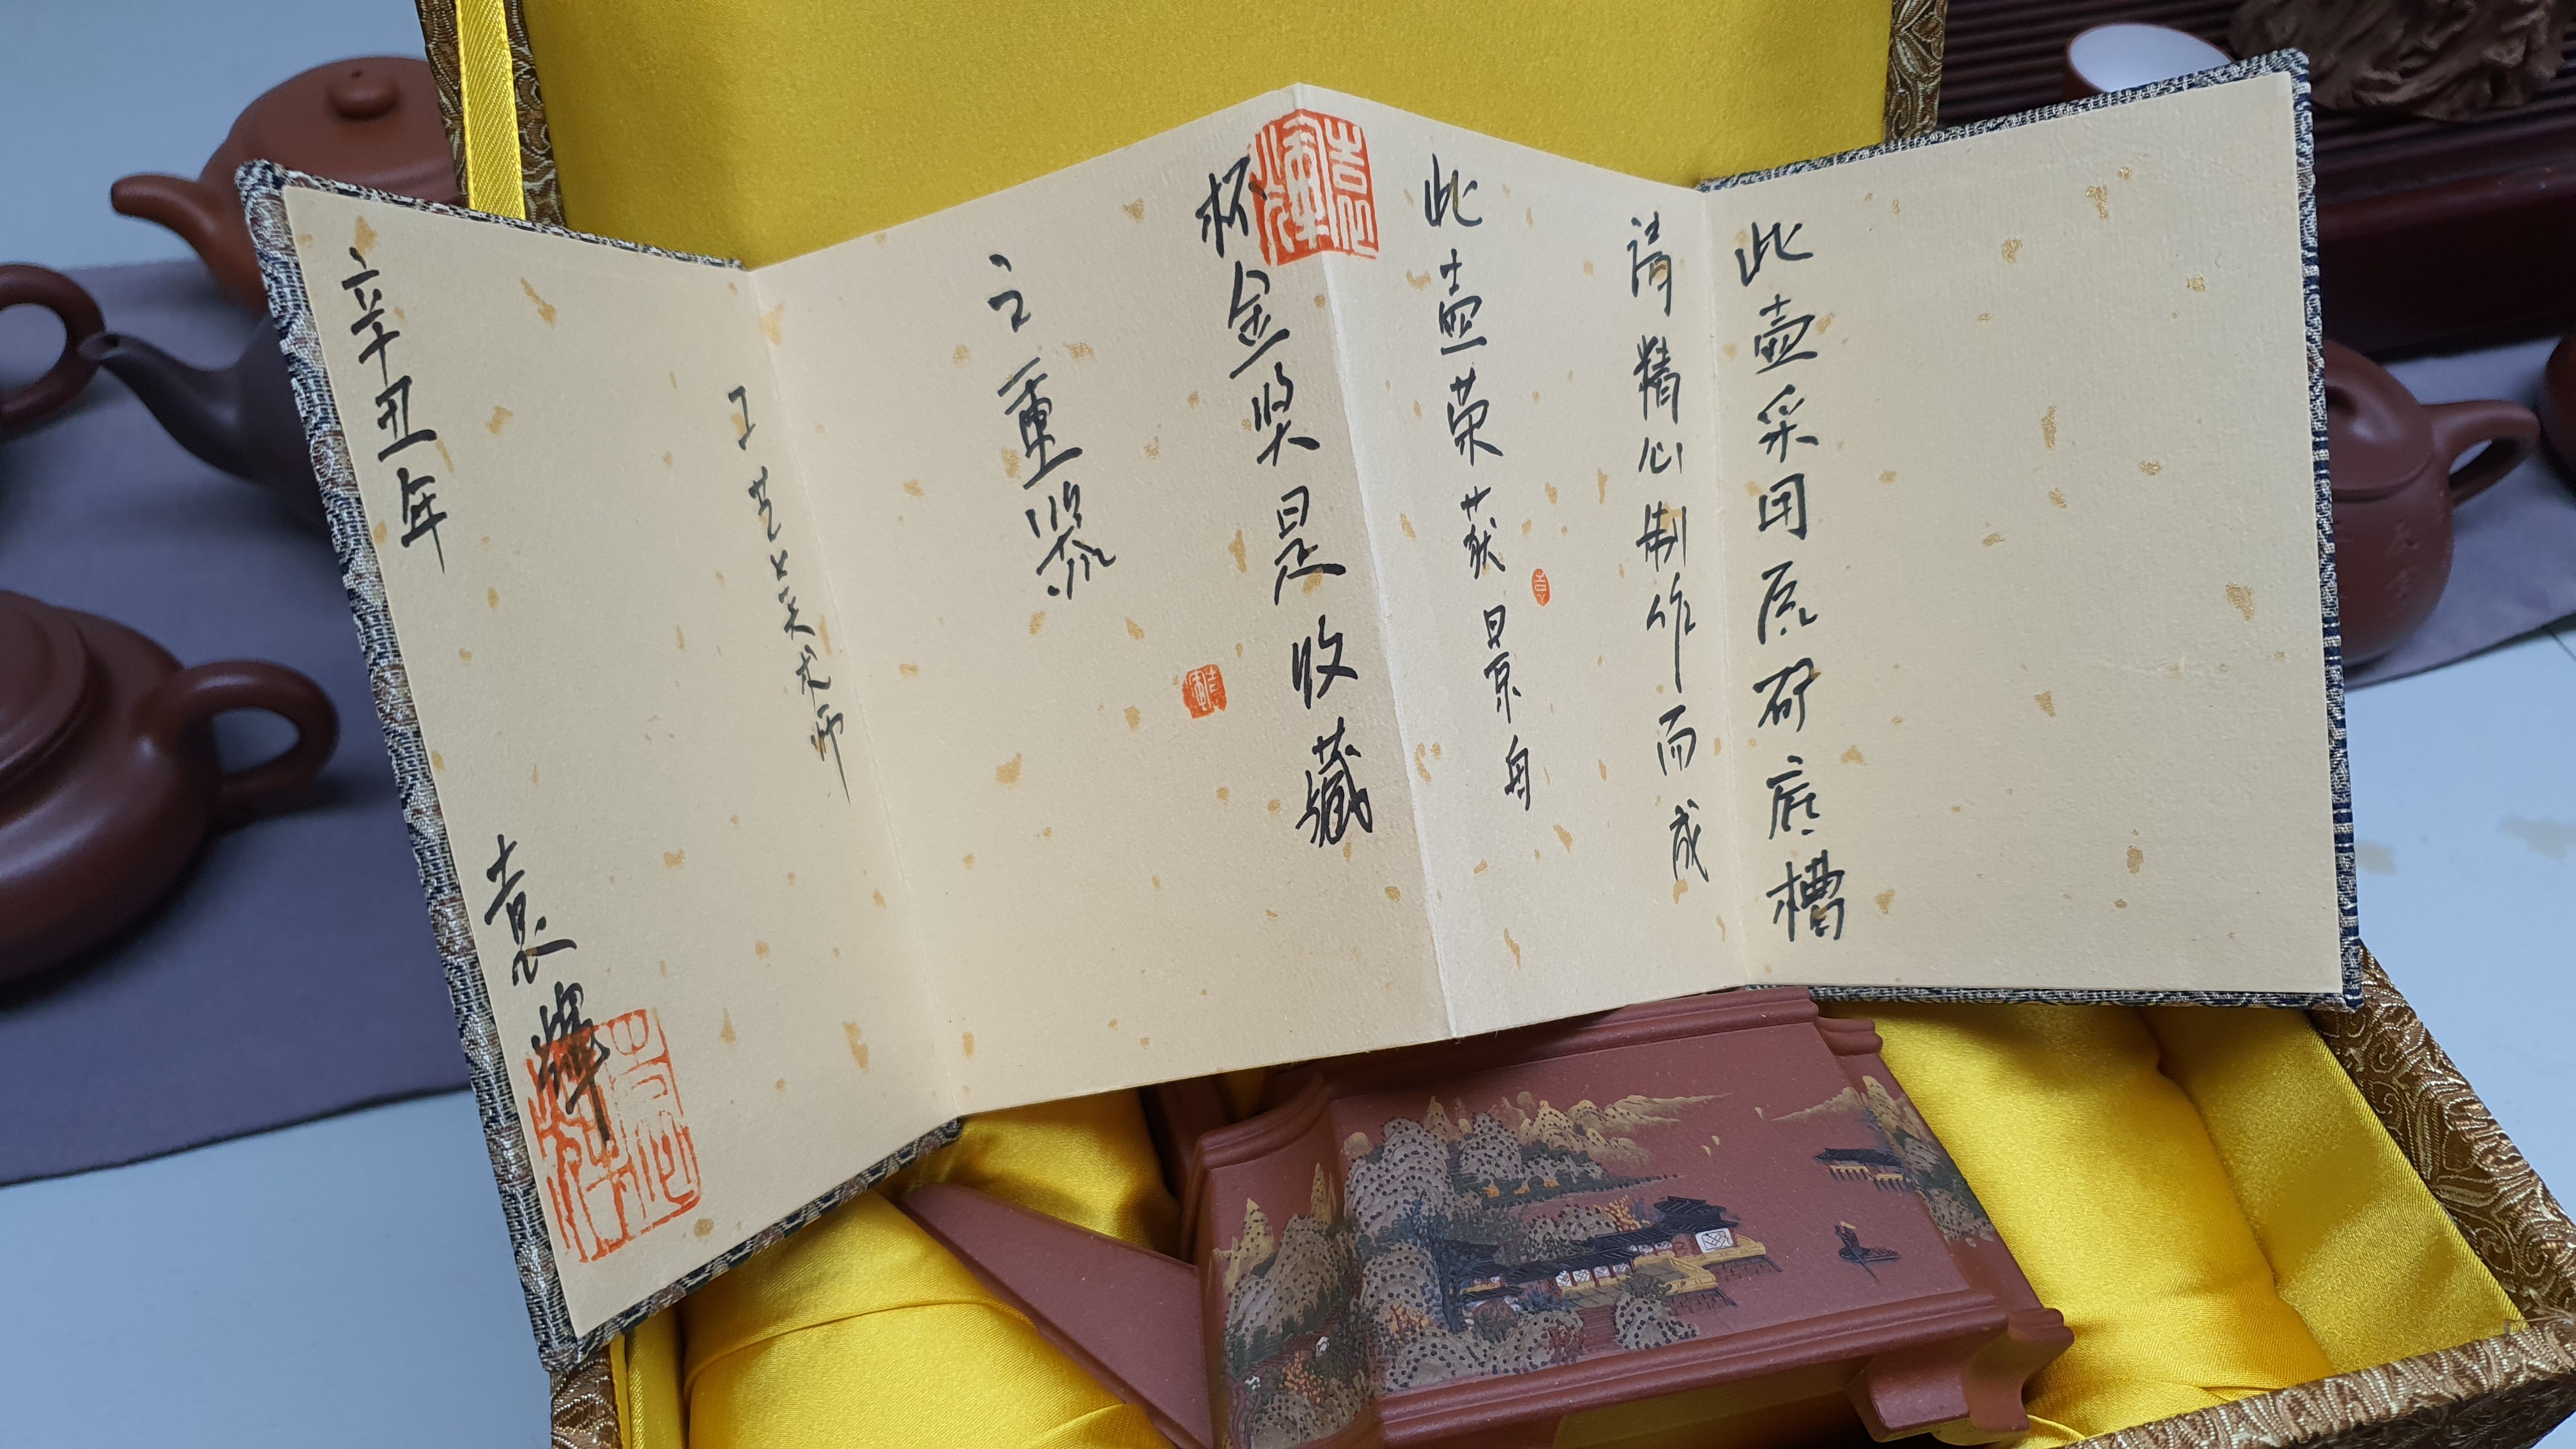 此壶采用原矿底槽
清精心制作而成
此壶荣获景舟
杯金奖是收藏
之重
工艺美术师
辛丑年 袁辉